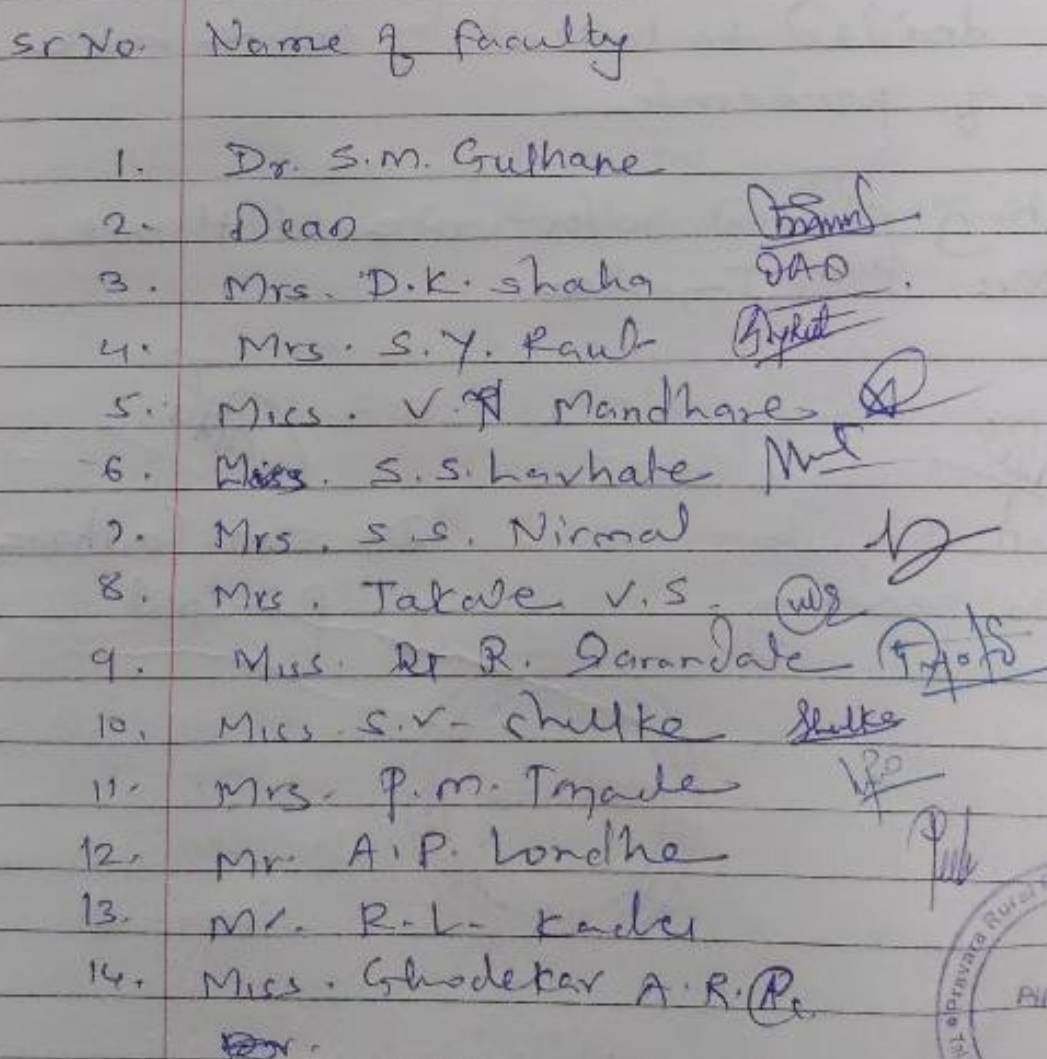 Sr No. Name of faculty
1. Dr. S.M. Gulhane
2. Dean
3. Mrs. D.K. shaha
4. Mrs. S.Y. Raut
5. Miss. V. Mandhare
6. Miss. S.S. Lavhate
7. Mrs. S.S. Nirmal
8. Mrs. Takate V.S.
9. Miss. R. Darandale
10. Miss. S.V. Shelke Shelke
11. Mrs. P.M. Tayade
12. Mr. A.P. Londhe
13. Mr. R.L. Kadu
14. Miss. Ghodekar A.R.
Pravara Rural